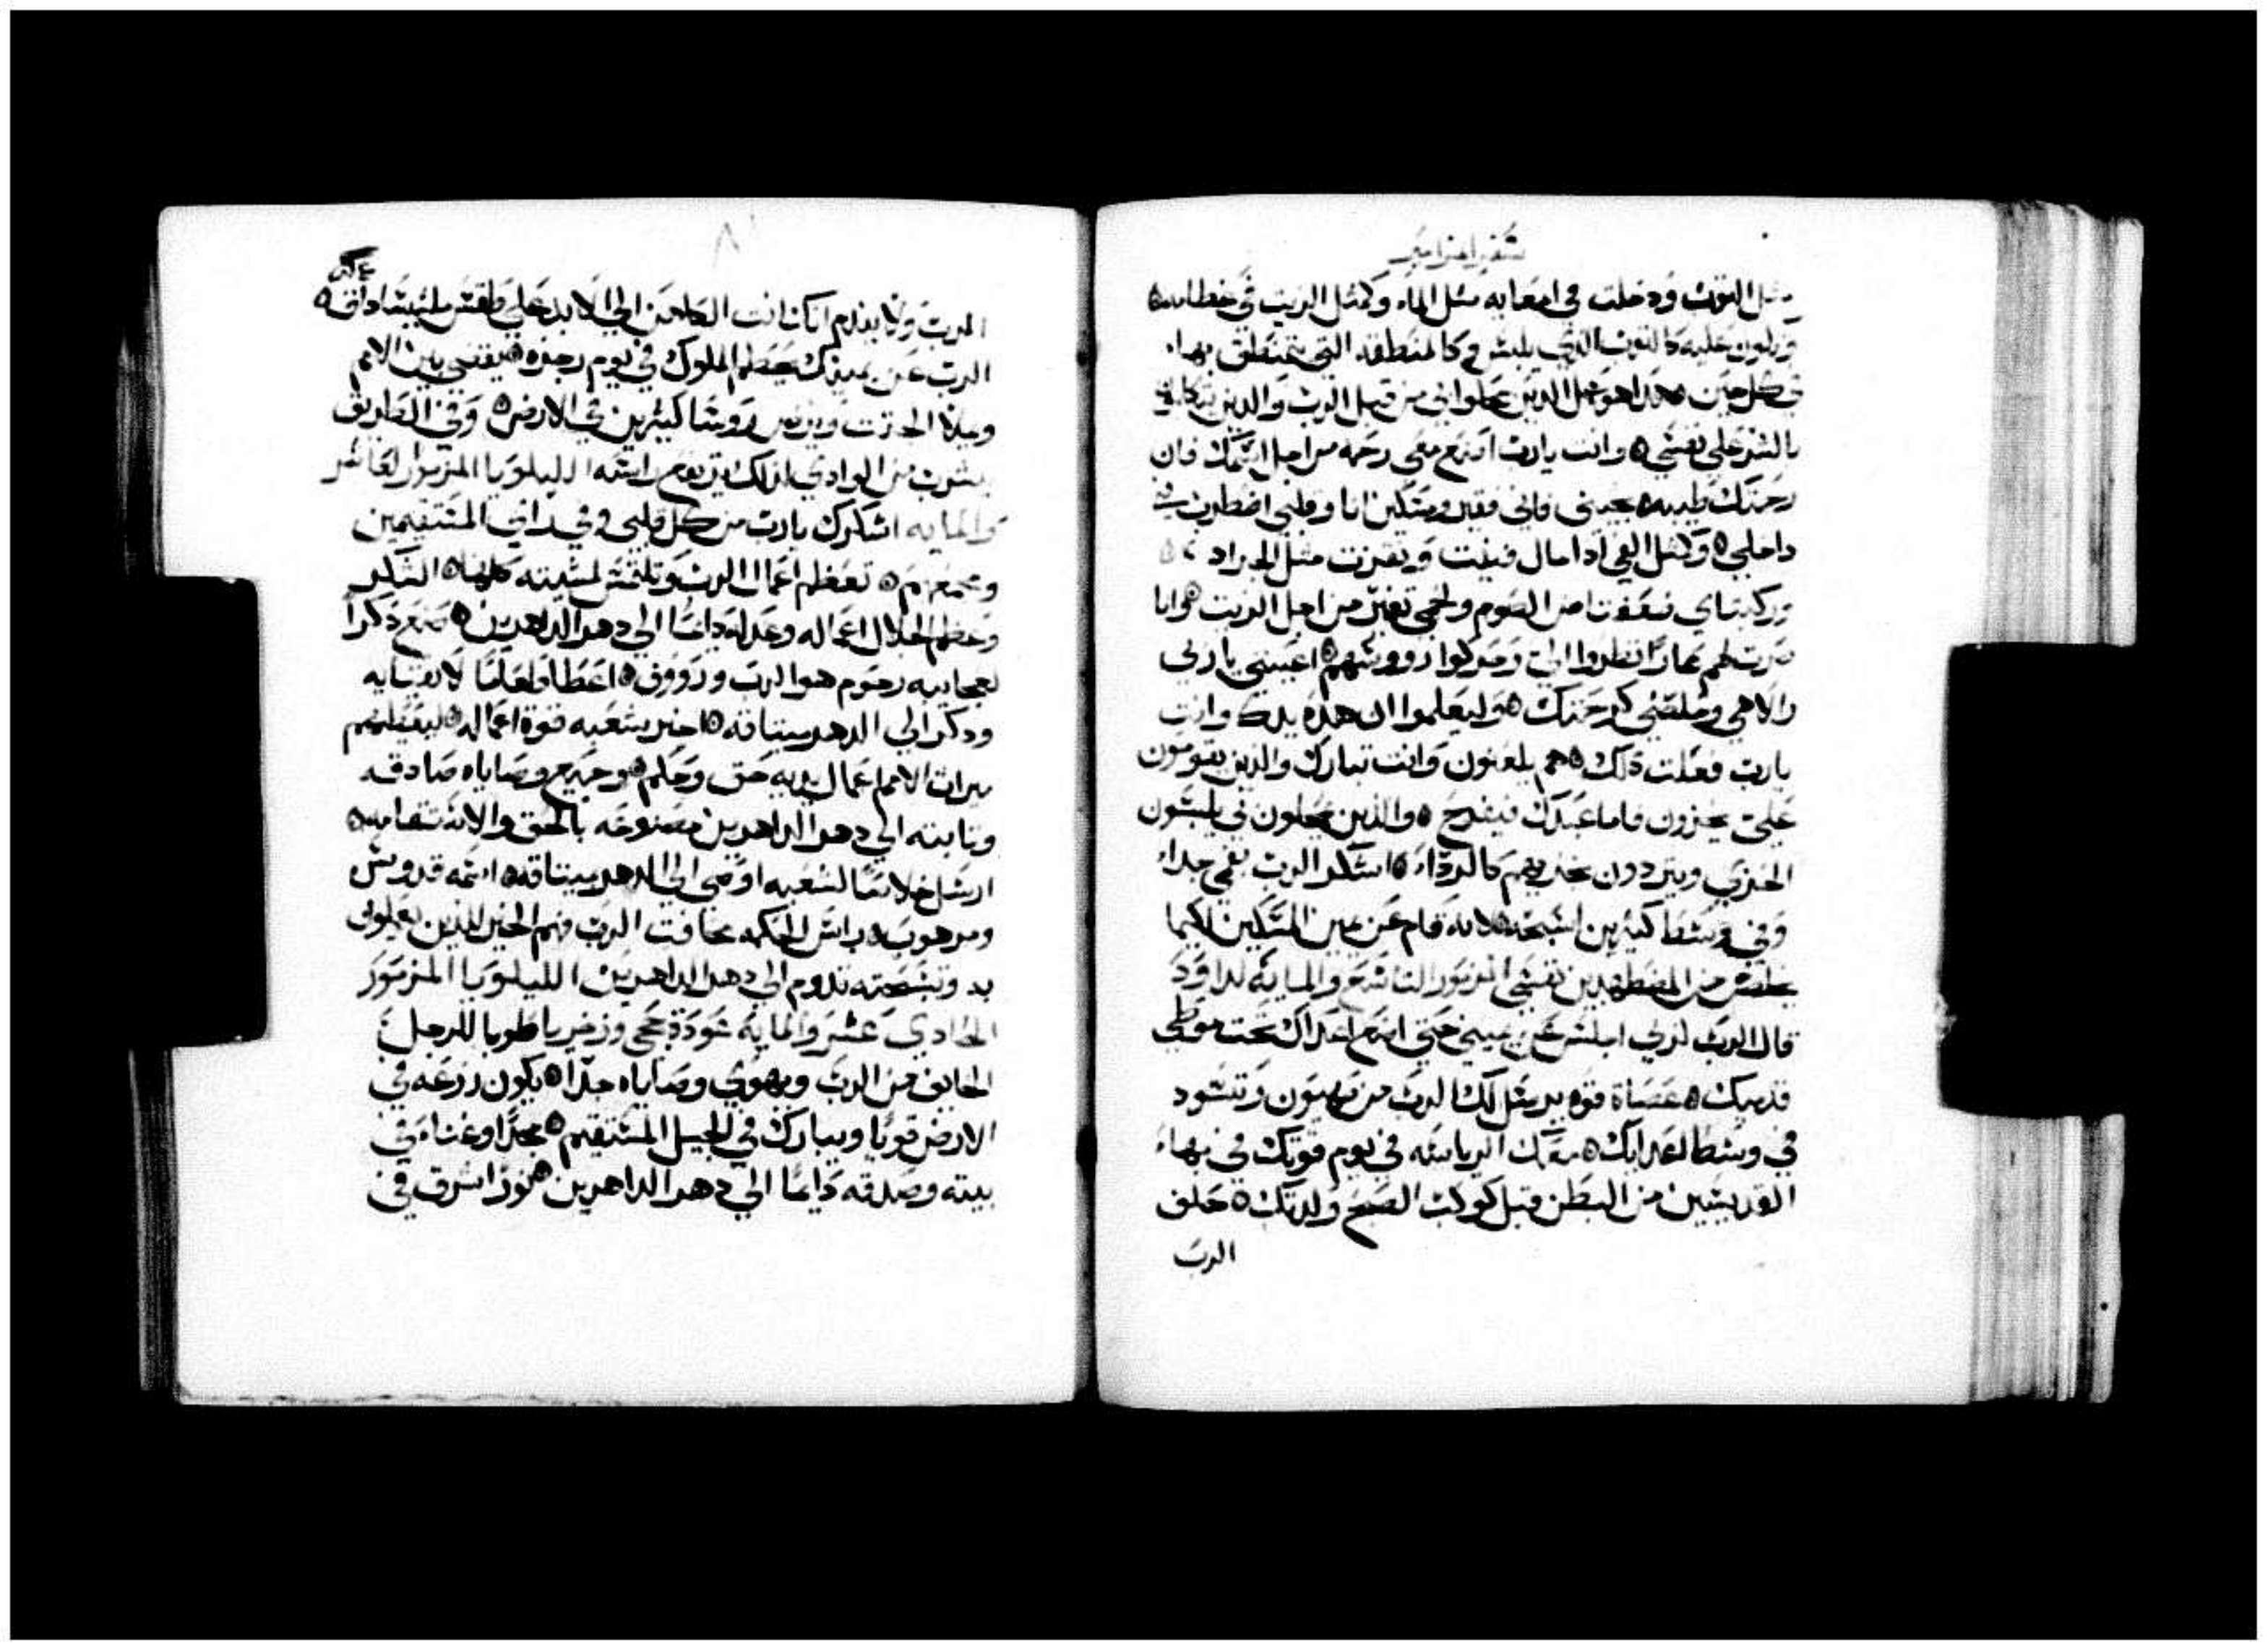 سفر المزامير
مثل الثوب ودخلت في امعايه مثل الماء وكمثل الزيت في عظامه
ويكون عليه كالثوب الذي يلبس وكالمنطقه التي يتمنطق بها
في كل حين هذا هو عمل الدين محلوا بي من قبل الرب والدين يتكلمو
بالشر علي نفسي وانت يارب اصنع معي رحمه من اجل اسمك فان
رحمتك طيبه نجيني فاني فقير ومسكين انا وقلبي اضطرب في
داخلي وكمثل الفي ادا مال فنيت وتفزرت مثل الجراد
وركبتاي ضعفت من الصوم ولحمي تغير من اجل الزيت وانا
صرت لهم عارا نظروا الي وحركوا رووسهم اعيني يا ربي
والاهي وخلصني كرحمتك وليعلموا ان هذه يدك وانت
يارب فعلت ذلك هم يلعنون وانت تبارك والدين يقومون
علي يخزون فاما عبدك فيفرح والذين محلون بي يلبسون
الخزي ويتردون بخزيهم كالرداء اشكر الرب بفمي جداء
وفي وسط كثيرين اسبحه لانه قام عن يمين المسكين لكيما
يخلص من المضطهدين نفسي المزمور التاسع والمايه لداوود
قال الرب لربي اجلس عن يميني حتي اضع اعداك تحت موطي
قدميك عصاة قوه يرسل لك الرب من صهيون وتسود
في وسط اعدايك معك الرياسه في يوم قوتك في بهاء
القديسين من البطن قبل كوكب الصبح ولدتك حلف
الرب
الرب ولا يندم انك انت الكاهن الي الابد علي طقس مليشاداق
الرب عن يمينك يحطم الملوك في يوم رجزه يقضي بين الامم
ويملا الجثث ويرض رووسا كثيرين في الارض وفي الطريق
يشرب من الوادي لذلك يرفع راسه الليلويا المزمور العاشر
والمايه اشكرك يارب من كل قلبي وفي راي المستقيمين
ومجمعهم تعظم اعمال الرب وتلتمس لمشيته كلها الشكر
وعظم الجلال اعماله وعدله دايما الي دهر الداهرين صنع ذكرا
لعجايبه رحوم هو الرب ورووف اعطا طعاما لاتقيايه
ودكر الي الدهر ميتاقه اخبر شعبه قوة اعماله ليعطيهم
ميرات الامم اعمال يديه حق وحكم وجميع وصاياه صادقه
وتابته الي دهر الداهرين مصنوعه بالحق والاستقامه
ارسل خلاصا لشعبه اوصي الي الدهر ميتاقه اسمه قدوس
ومرهوب راس الحكمه مخافت الرب فهم الخير للذين يعملون
به وتسبحته تدوم الي دهر الداهرين الليلويا المزمور
الحادي عشر والمايه عودة حجي وزخريا طوبا للرجل
الخايف من الرب ويهوي وصاياه جدا يكون زرعه في
الارض قويا ويبارك في الجيل المستقيم مجدا وغناء في
بيته وصدقه دايما الي دهر الداهرين نورا اشرق في